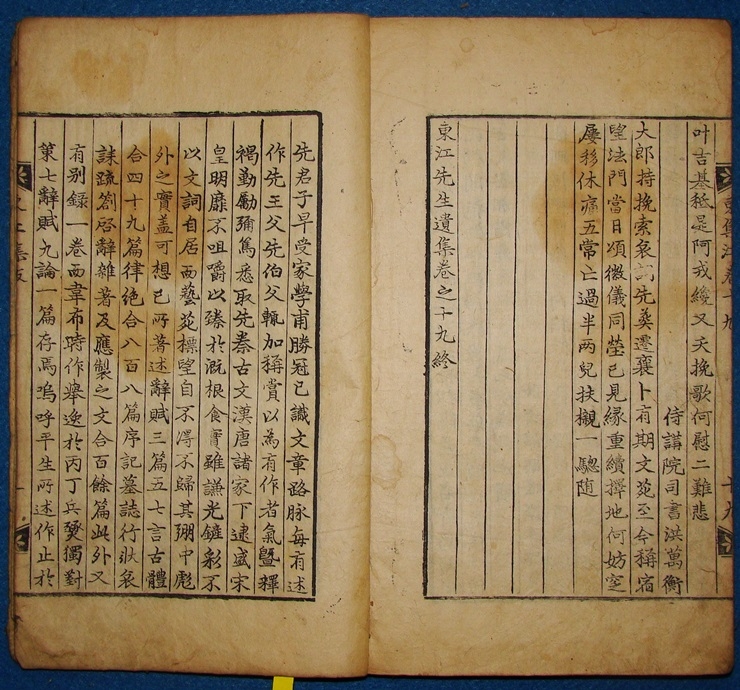 叶吉基秪是阿戎緌又夭挽歌何慰二難悲
侍講院司書洪萬衡
大郎持挽索哀詞先葬遷襄卜有期文苑至今稱宿
望法門當日頌徽儀同塋已見緣重續擇地何妨窆
屢移休痛五常亡過半兩兒扶櫬一驄随
東江先生遺集卷之十九終
先君子早受家學甫勝冠已識文章路脉每有述
作先王父先伯父輒加稱賞以為有作者氣曁釋
褐勤勵彌篤悉取先秦古文漢唐諸家下逮盛宋
皇明靡不咀嚼以臻於漑根食實雖謙光鏟彩不
以文詞自居而藝苑標望自不淂不歸其弸中彪
外之實盖可想已所著述辭賦三篇五七言古體
合四十九篇律絶合八百八篇序記墓誌行狀哀
誄疏箚啓辭雜著及應製之文合百餘篇此外又
有别録一卷而韋布時作舉逸於丙丁兵燹獨對
策七辭賦九論一篇存焉嗚呼平生所述作止於